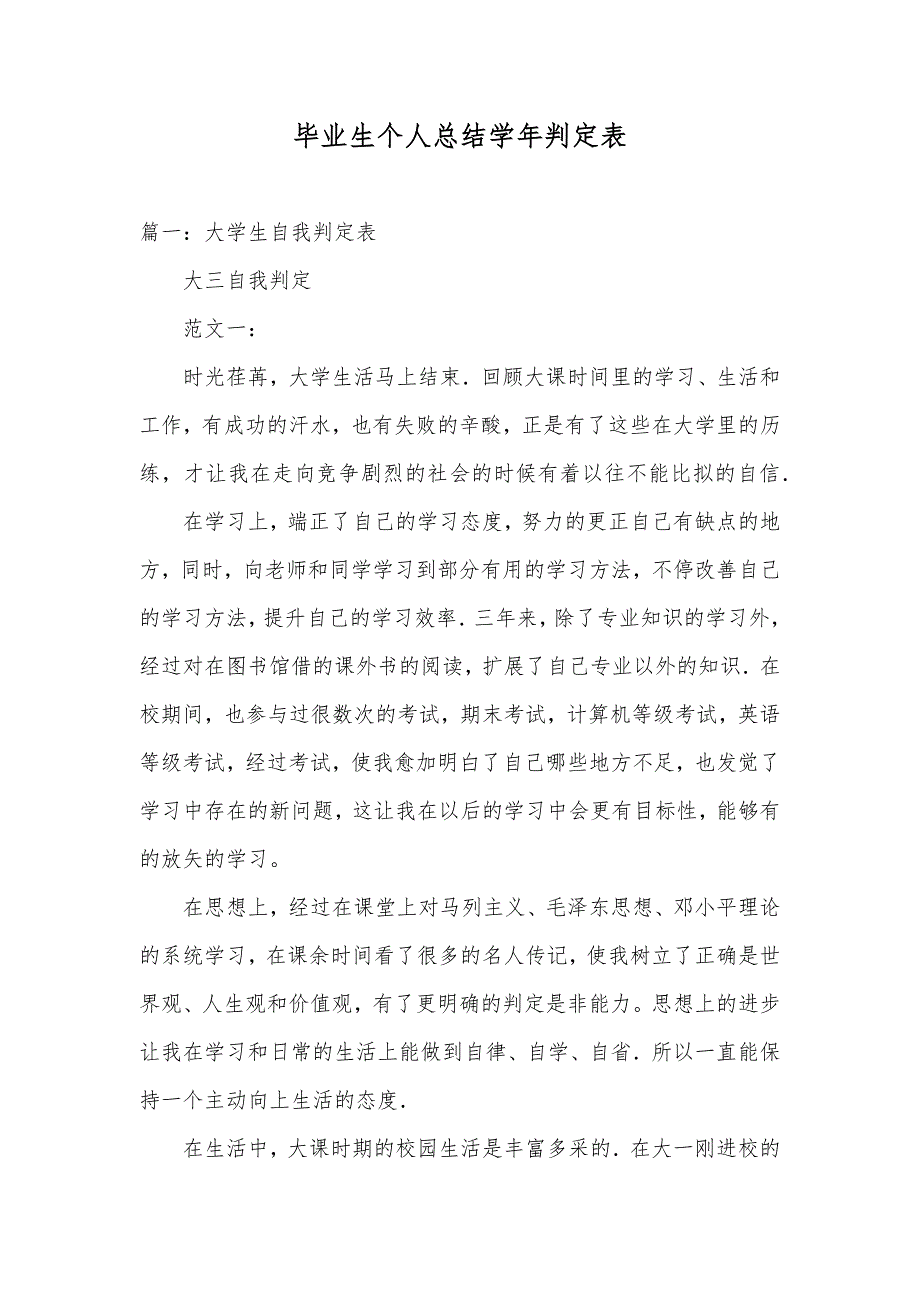 毕业生个人总结学年判定表
篇一：大学生自我判定表
大三自我判定
范文一：
时光荏苒，大学生活马上结束．回顾大课时间里的学习、生活和
工作，有成功的汗水，也有失败的辛酸，正是有了这些在大学里的历
练，才让我在走向竞争剧烈的社会的时候有着以往不能比拟的自信．
在学习上，端正了自己的学习态度，努力的更正自己有缺点的地
方，同时，向老师和同学学习到部分有用的学习方法，不停改善自己
的学习方法，提升自己的学习效率．三年来，除了专业知识的学习外，
经过对在图书馆借的课外书的阅读，扩展了自己专业以外的知识．在
校期间，也参与过很数次的考试，期末考试，计算机等级考试，英语
等级考试，经过考试，使我愈加明白了自己哪些地方不足，也发觉了
学习中存在的新问题，这让我在以后的学习中会更有目标性，能够有
的放矢的学习。
在思想上，经过在课堂上对马列主义、毛泽东思想、邓小平理论
的系统学习，在课余时间看了很多的名人传记，使我树立了正确是世
界观、人生观和价值观，有了更明确的判定是非能力。思想上的进步
让我在学习和日常的生活上能做到自律、自学、自省．所以一直能保
持一个主动向上生活的态度．
在生活中，大课时期的校园生活是丰富多采的．在大一刚进校的